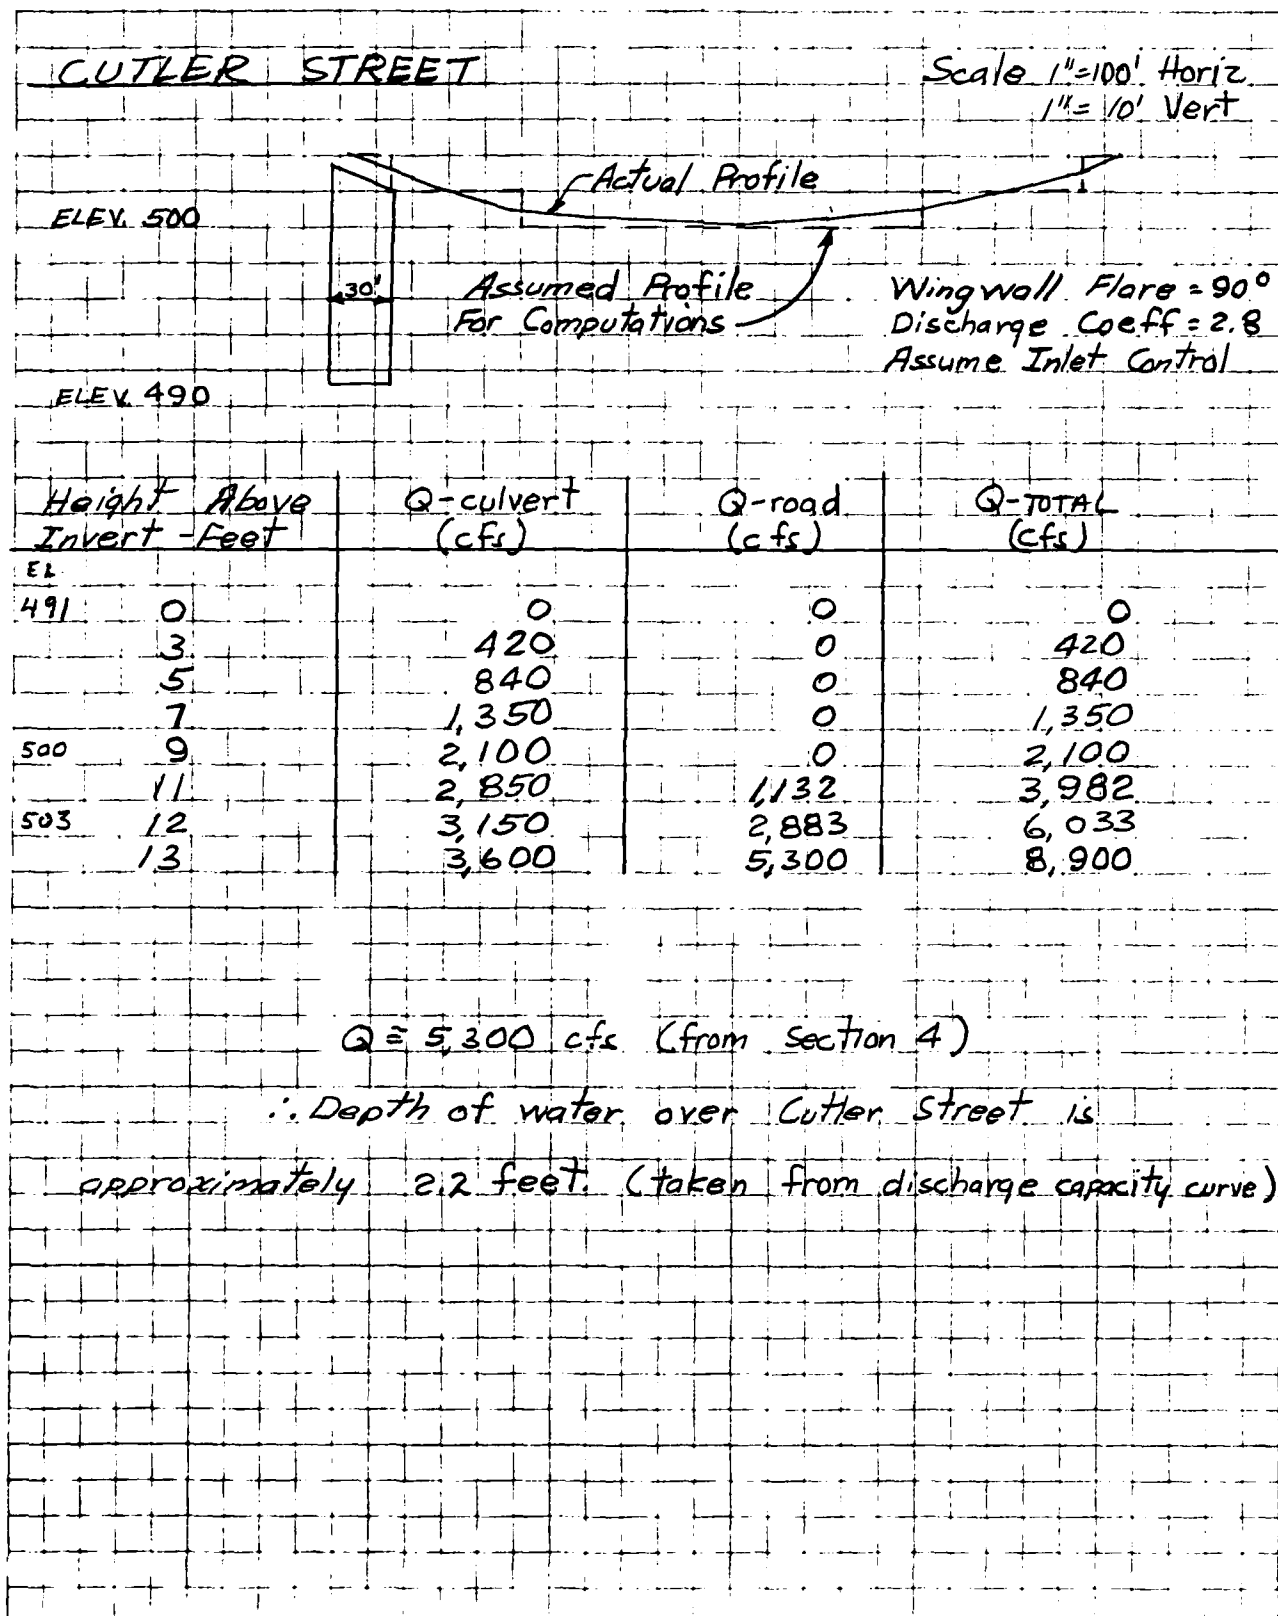 CUTLER STREET
Scale 1"=100' Horiz
1"= 10' Vert
Actual Profile
ELEV. 500
30'
Assumed Profile
For Computations
Wingwall Flare = 90°
Discharge Coeff = 2.8
Assume Inlet Control
ELEV. 490
Height Above Q-culvert Q-road Q-TOTAL
Invert -Feet (cfs) (cfs) (cfs)
EL
491 0 0 0 0
3 420 0 420
5 840 0 840
7 1,350 0 1,350
500 9 2,100 0 2,100
11 2,850 1,132 3,982
503 12 3,150 2,883 6,033
13 3,600 5,300 8,900
Q ≅ 5,300 cfs (from section 4)
∴ Depth of water over Cutler Street is
approximately 2.2 feet. (taken from discharge capacity curve)